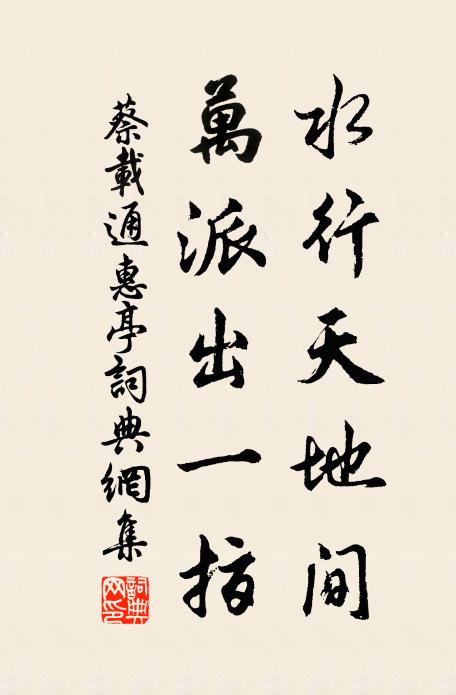 水行天地间
萬派出一指
蔡載通惠亭詞典網集
詞典网印